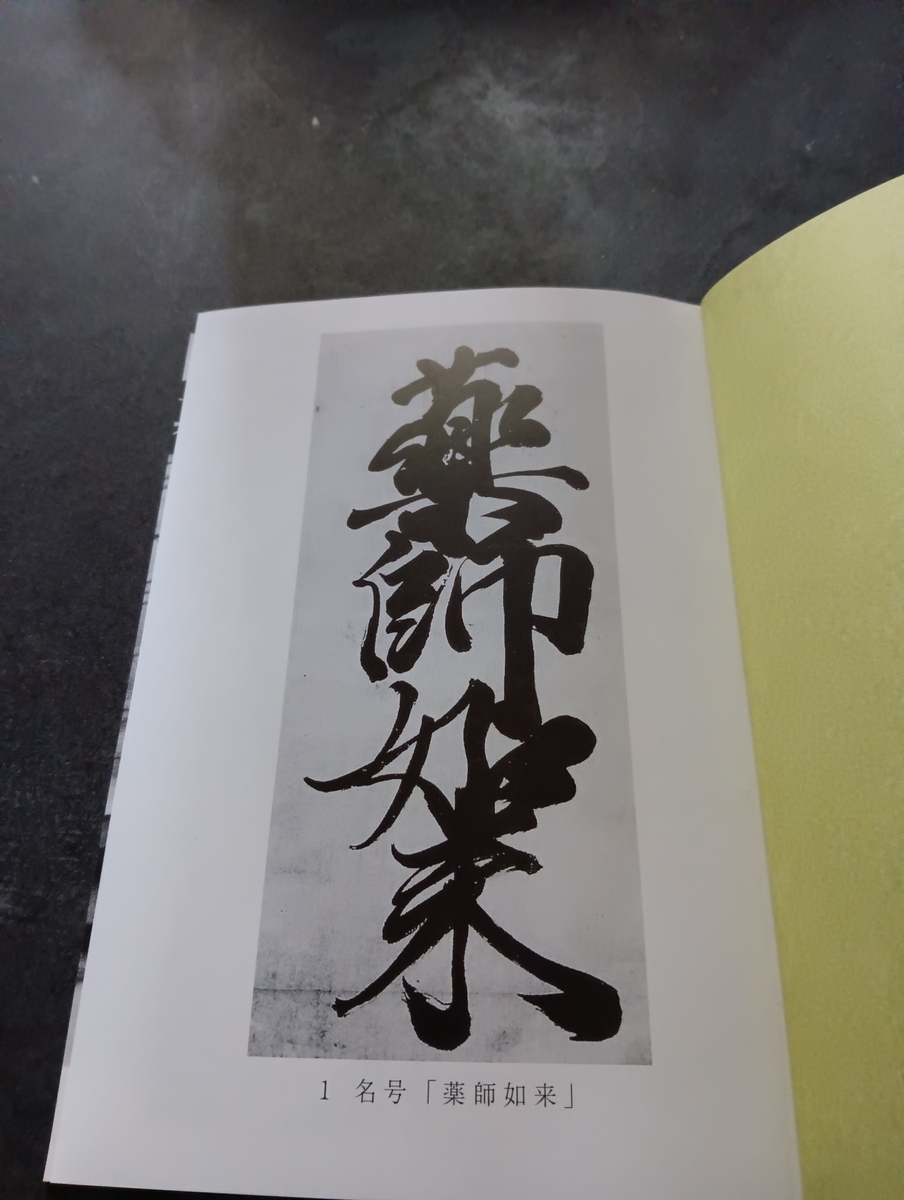 薬師如来
1 名号「薬師如来」